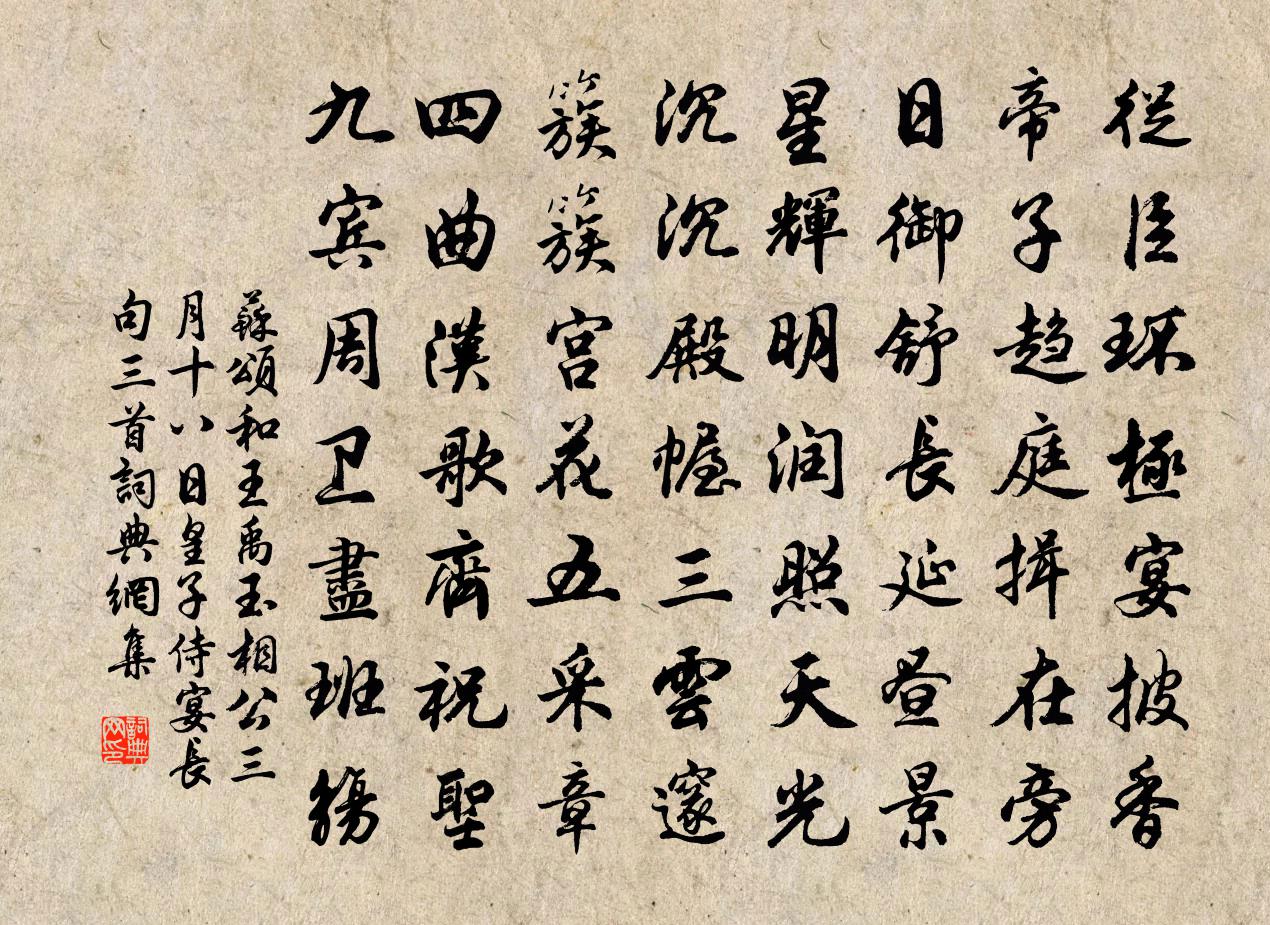 從臣环極宴披香
帝子趋庭揖在旁
日御舒長延昼景
星輝明润照天光
沉沉殿幄三雲邃
簇簇宫花五采章
四曲漢歌齊祝聖
九宾周卫盡班觴
蘇頌和王禹玉相公三
月十八日皇子侍宴長
句三首詞典網集
詞典网印